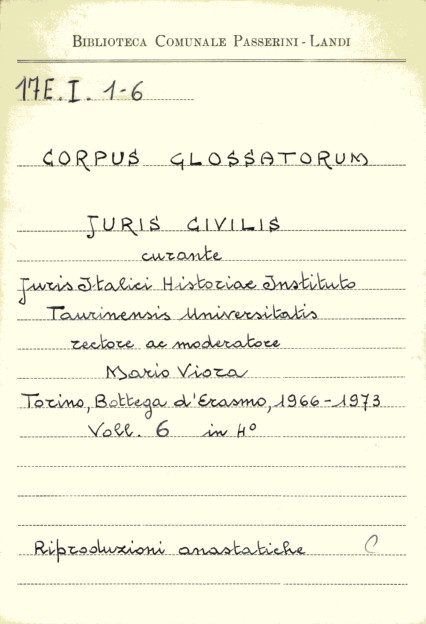 BIBLIOTECA COMUNALE PASSERINI - LANDI
17E.I. 1-6
CORPUS GLOSSATORUM
JURIS CIVILIS
curante
Juris Italici Historiae Instituto
Taurinensis Universitatis
rectore ac moderatore
Mario Viora
Torino, Bottega d'Erasmo, 1966-1973
Voll. 6 in 4º
Riproduzioni anastatiche C